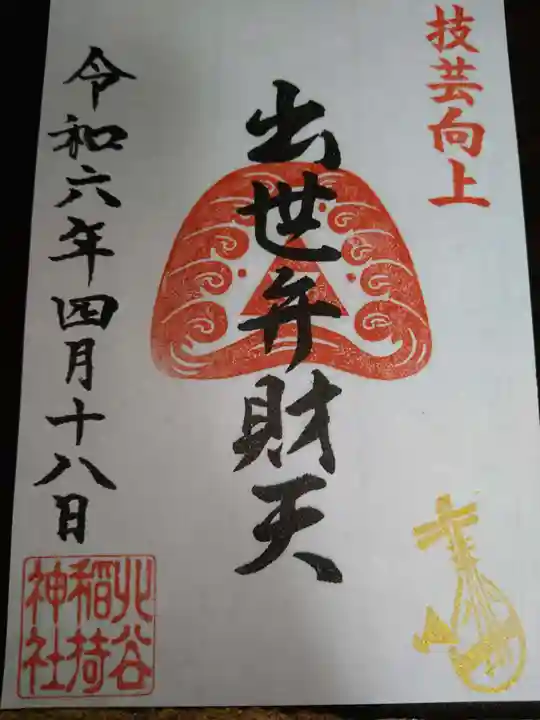 技芸向上
出世弁財天
令和六年四月十八日
北谷
稲持
神社